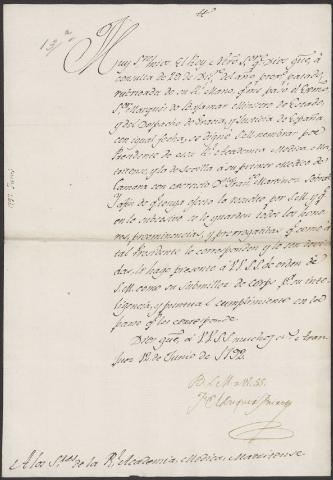 Muy S.res mios: El Rey Nro. S.or q.e Dios gue. à
consulta de 29 de Dic.e del año prox.o pasado,
rubricada de su R.l Mano, q.e àèste pasó el Exmo
S.or Marqués de Bajamar Ministro de Estado
y del Despacho de Gracia, y Justicia de España
con igual fecha, se dignó S.M. nombrar por
Presidente de esa R.l Academia Medica Ma-
tritense, y la de Sevilla à su primer Medico de
Camara con exercicio Dn. Fran.co Martinez Sobral
à fin de q.e tenga efecto lo resuelto por S.M. y q.e
en lo subcesivo se le guarden todos los hono-
res, preeminencias, y prerrogativas q.e como à
tal Presidente le corresponden y le son devi-
das, lo hago presente à VV.SS. de orden de
S.M. como su Sumiller de Corps p.a su inte-
ligencia, y puntual cumplimiento en la
parte q.e les corresponde.
Dios gue. à VV.SS. muchos a.s Aran-
juez 12 de Junio de 1792.
B. L. M. à VV. SS.
A los S.res de la R.l Academia Medica Matritense.